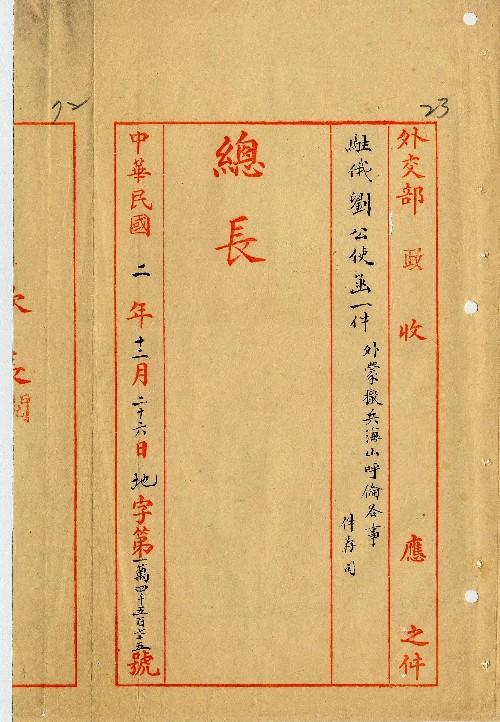 23
外交部 政 收 應 之件
駐俄劉公使函一件 外蒙撤兵海山呼倫各事
件存司
總長
中華民國二年十二月二十六日地字第一萬四千五百六十五號
72
次長閱